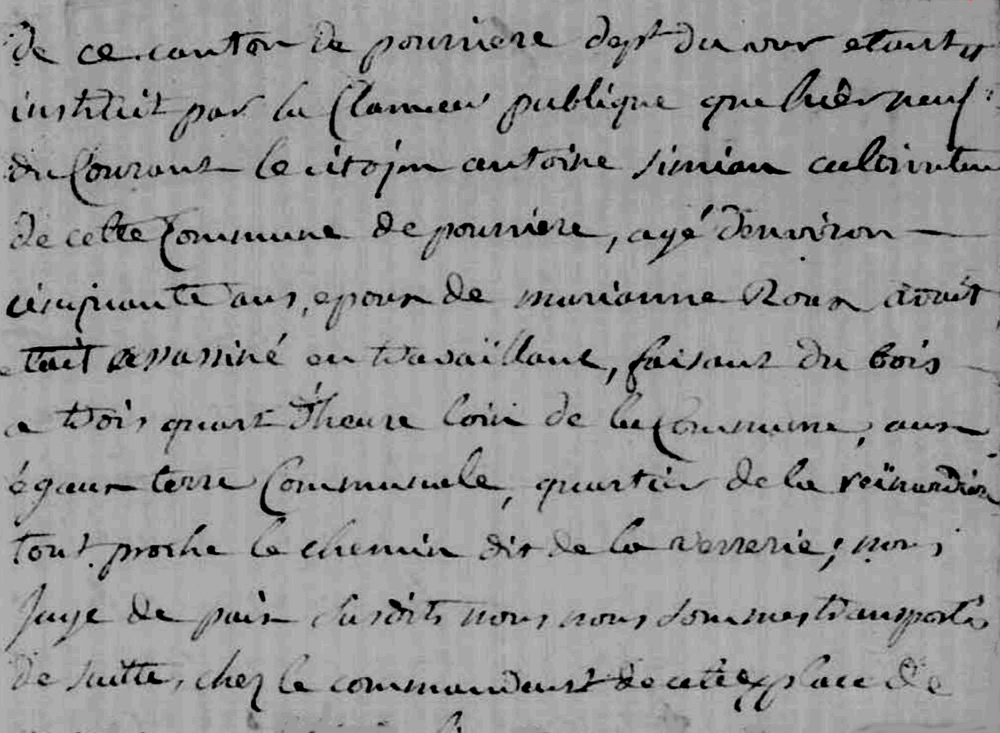 de ce canton de pourriere dept du var etant
instruit par la Clameur publique que hier neuf
du Courant le citojen antoine simian cultivateur
de cette Commune de pourriere, agé d'environ —
cinquante ans, epoux de marianne Roux avait
etait assassiné en travaillant, faisant du bois
a trois quart d'heure loin de la Commune, aux
égaux terre Communale, quartier de la reïnardiere
tout proche le chemin dit de la verrerie; nous
juge de paix susdits nous nous sommes transportés
de suitte, chez le commandant de cette place de